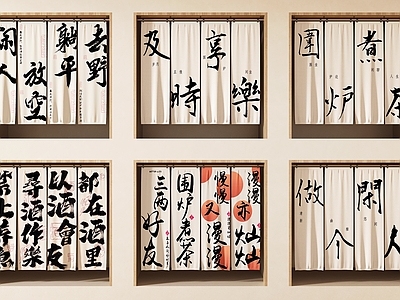 人
放空
躺平
去野
及
時
享
樂
圍
炉
煮
茶
尋酒作樂
以酒會友
都在酒里
三两好友
围炉煮茶
慢慢又漫漫
漫漫亦灿灿
做
个
閑
人